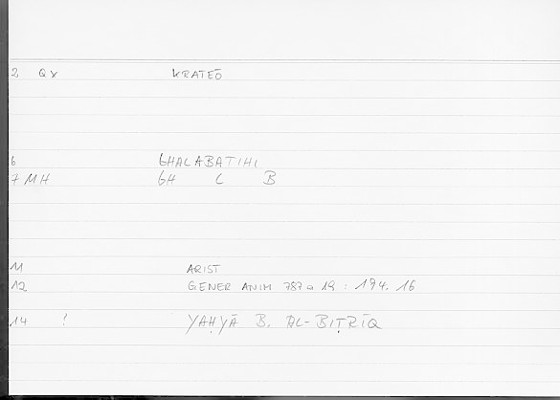 2 QY KRATEŌ
6 GHALABATIHI
7 MH GH L B
11 ARIST
12 GENER ANIM 787 a 19 : 194. 16
14 ! YAḤYĀ B. AL-BIṬRĪQ